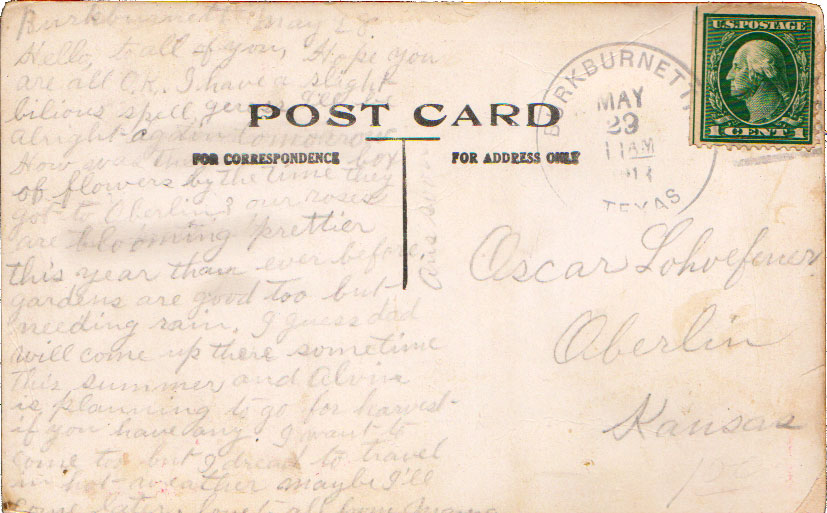 Burkburnett May 28
Hello, to all of you, Hope you
are all O.K. I have a slight
bilious spell, guess
alright again tomorrow
How was the box
of flowers by the time they
got to Oberlin? our roses
are blooming prettier
this year than ever before,
gardens are good too but
needing rain. I guess dad
will come up there sometime
this summer and Alvin
is planning to go for harvest
if you have any I want to
come too but I dread to travel
in hot weather maybe I'll
come later, love to all from Mama
ans soon
POST CARD
FOR CORRESPONDENCE
FOR ADDRESS ONLY
BURKBURNETT
MAY
29
11 AM
TEXAS
U.S. POSTAGE
1 CENT 1
Oscar Lohoefener
Oberlin
Kansas